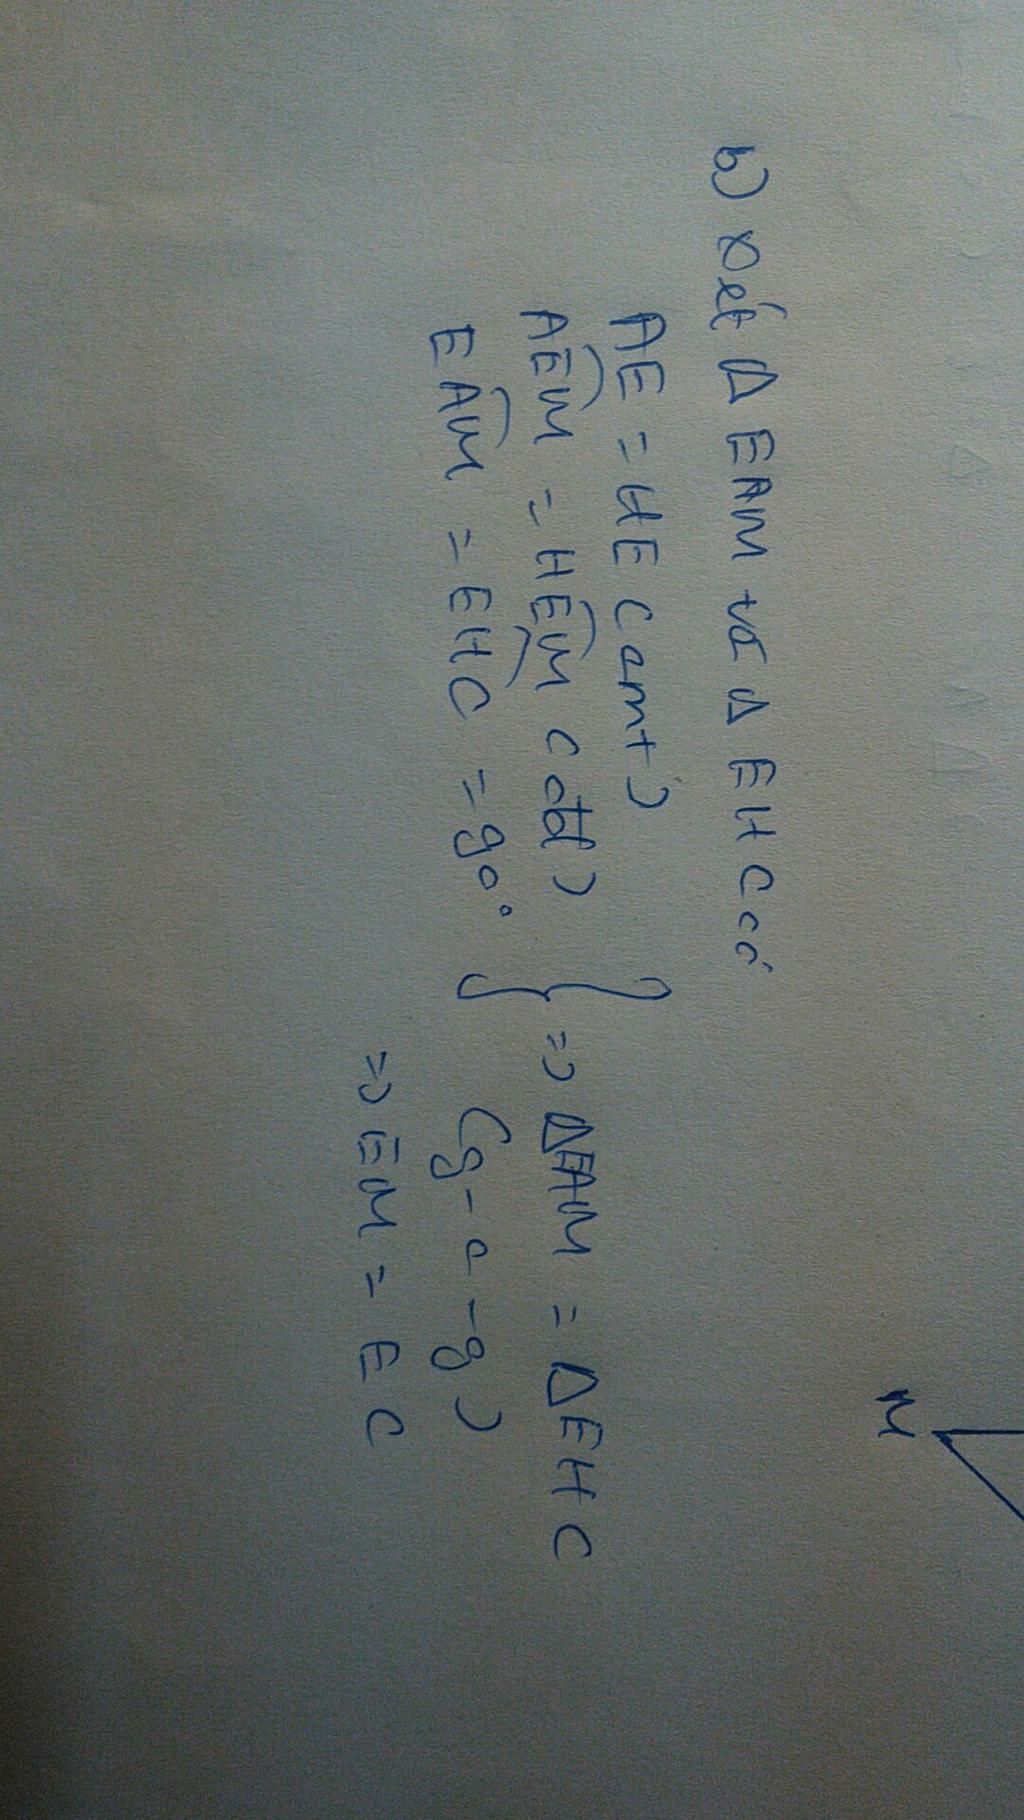 b) xét Δ EAM và Δ EHC có
AE = HE (cmt)
AÊM = HÊM (đđ)
EÂM = EĤC = 90°
=> ΔEAM = ΔEHC
(g-c-g)
=> EM = EC
M